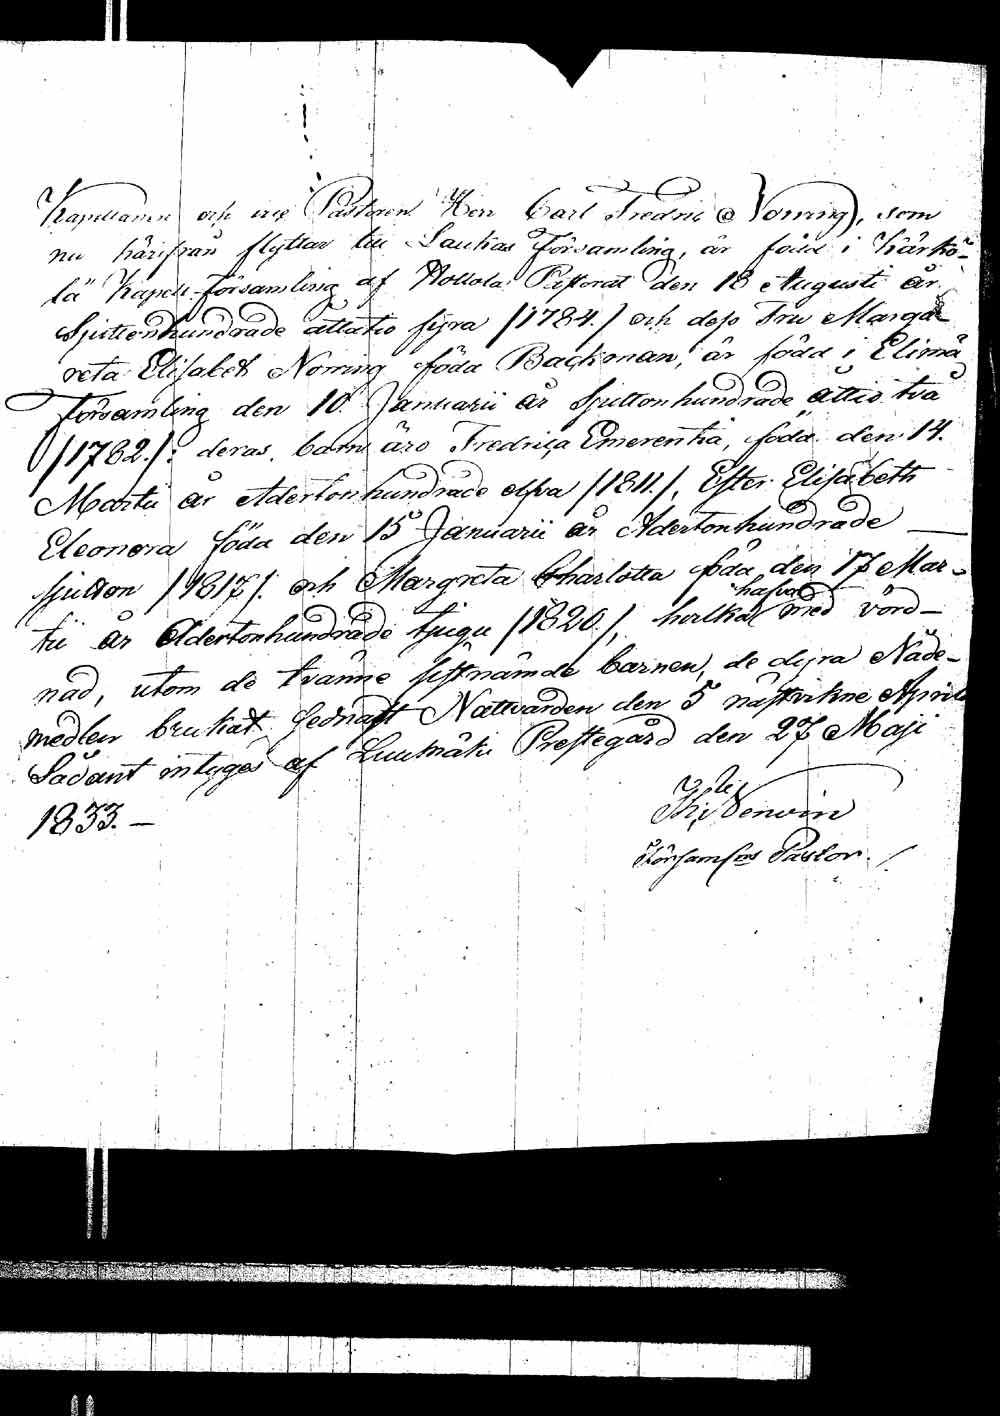 Kapellanen och vice Pastoren Herr Carl Fredric Norring, som
nu härifrån flyttar till Laukas Församling, är född i Kärkö-
lä Kapell-församling af Hollola Pastorat den 18 Augusti år
Sjuttonhundrade åttatio fyra /1784./ och dess Fru Marga-
reta Elisabet Norring född Backman, är född i Elimä
Församling den 10. Januarii år Sjuttonhundrade åttio två
/1782./: deras barn äro Fredrica Emerentia, född den 14.
Martii år Adertonhundrade elfva /1811./, Ester Elisabeth
Eleonora född den 15 Januarii år Adertonhundrade —
sjutton /1817/. och Margreta Charlotta född den 17 Mar-
tii år Adertonhundrade tjugu /1820./, hvilka hafva med vörd-
nad, utom de tvänne sistnämde barnen, de dyra Nåde-
medlen brukat, sednast Nattvarden den 5 nästvikne April
Sådant intygas af Luumäki Prestegård den 27 Maji
1833. —
Försam:s Pastor.